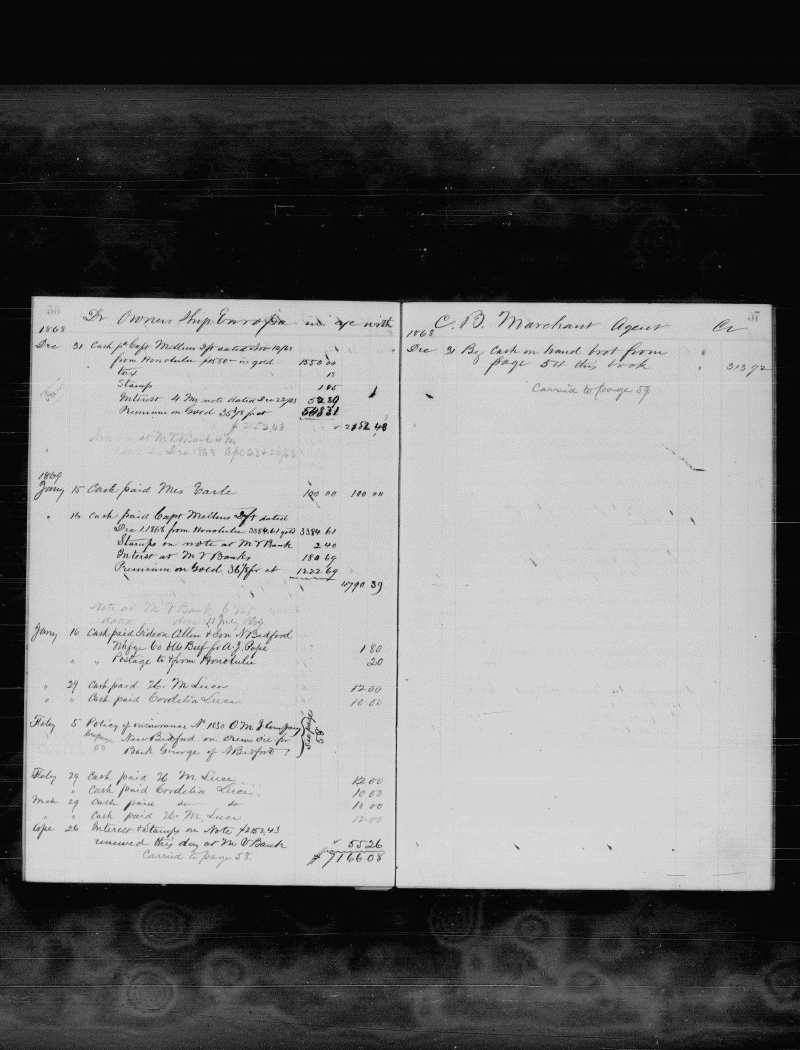 56
Dr Owners Ship Europa in a/c with
1868
Dec 31 Cash pd Capt Mellens Dft dated Nov 10/68
from Honolulu $1550— in gold 1550 00
13
Stamps 1 05
Interest 4 Ms note dated Dec 23/68
Premium on Gold 35 3/8 pr ct 548 31
$2152,43 2152 43
Note at M V Bank 4 Ms
Dec 1868 Apl 23+26/69
1869
Jany 15 Cash paid Mrs Earle 100 00 100 00
" 16 Cash paid Capt Mellens Dft dated
Dec 1. 1868 from Honolulu 3384.61 gold 3384 61
Stamps on note at M V Bank 2 40
Interest at M V Banks 180 69
Premium on Gold 36 1/8 pr ct 1222 69
4790 39
Note at M V Bank 6 Ms
dated due 11 July 1869
Jany 16 Cash paid Gideon Allen & Son N Bedford
Whfge 60 bbls Beef for A. J. Pope 1 80
" " Postage to & from Honolulu 20
" 29 Cash paid H. M Luce 12 00
" " Cash paid Cordelia Luce 10 00
Feby 5 Policy of insurance No 1830 O M I Company
New Bedford on Crews Oil pr
Bark George of N Bedford
See page 58
Feby 29 Cash paid H M Luce 12 00
" Cash paid Cordelia Luce 10 00
Mch 29 Cash paid do do 10 00
" " Cash paid H. M. Luce 12 00
Ape 26 Interest & Stamps on Note $2152,43
renewed this day at M V Bank 55 26
Carried to page 58. $7166 08
57
C. B. Marchant Agent Cr
1868
Dec 31 By Cash on hand brot from "
page 54 this book " 313 72
Carried to page 59